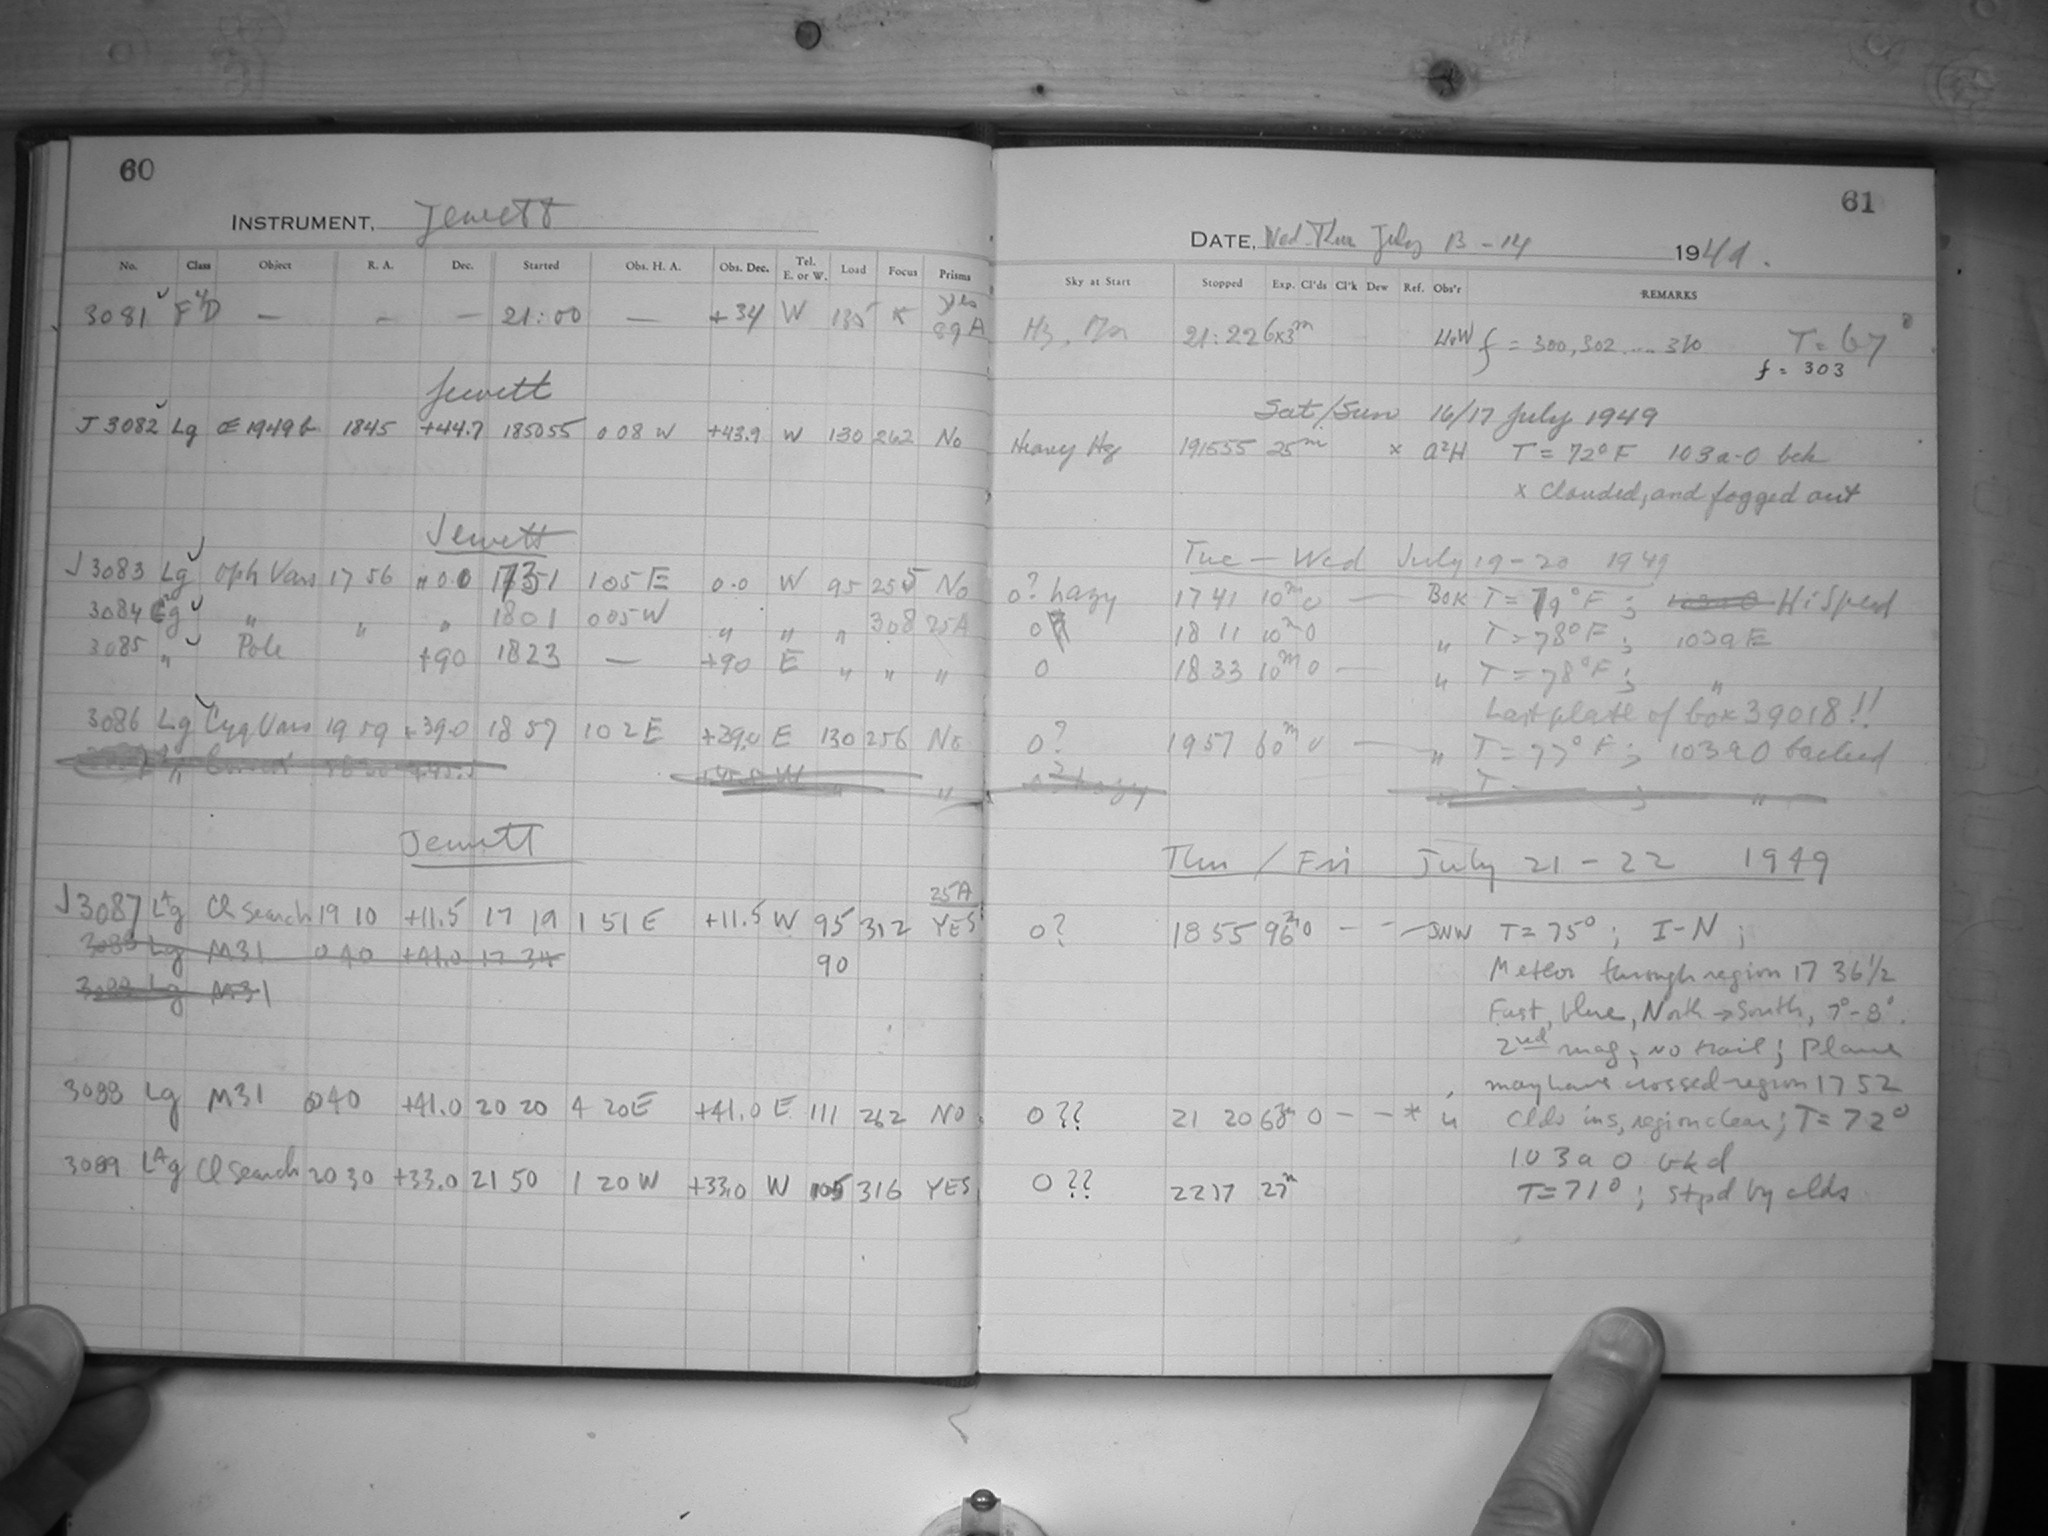 60
INSTRUMENT, Jewett
No. Class Object R. A. Dec. Started Obs. H. A. Obs. Dec. Tel. E. or W. Load Focus Prisms
3081 F D — — — 21:00 — +34 W 135 * yes 89A
Jewett
J 3082 Lg 1845 +44.7 185055 0 08 W +43.9 W 130 262 No
Jewett
J 3083 Lg Oph Vars 17 56 1731 1 05 E 0.0 W 95 255 No
3084 " " " 1801 005 W " " " 308 25A
3085 " Pole +90 1823 — +90 E " " "
3086 Lg Cyg Vars 19 59 +39.0 18 57 1 02 E +39.0 E 130 256 No
Jewett
25A
J 3087 LAg Cl Search 19 10 +11.5 17 19 1 51 E +11.5 W 95 312 YES
3088 Lg M31 0 40 +41.0 17 34 90
3088 Lg M31
3088 Lg M31 0 40 +41.0 20 20 4 20 E +41.0 E 111 262 NO
3089 LAg Cl Search 20 30 +33.0 21 50 1 20 W +33.0 W 105 316 YES
61
DATE, Wed-Thu July 13-14 1949.
Sky at Start Stopped Exp. Cl'ds Cl'k Dew Ref. Obs'r REMARKS
21:22 6x3m f = 300, 302 .... 310 T = 67°
f = 303
Sat/Sun 16/17 July 1949
Heavy Hz 191555 25m x a2H T = 72°F 103a-O bck
x Clouded, and fogged out
Tue — Wed July 19-20 1949
0? hazy 17 41 10m 0 — BOK T = 79°F ; 103aO Hi Speed
0 18 11 10m 0 " T = 78°F ; 103aE
0 18 33 10m 0 — " T = 78°F ; "
Last plate of box 39018!!
0? 19 57 60m 0 — " T = 77°F ; 103aO backed
Thu / Fri July 21 - 22 1949
0? 18 55 96m 0 — — JWW T = 75° ; I-N ;
Meteor through region 17 36 1/2
Fast, blue, North → South, 7°-8°.
2nd mag; no trail; Plane
may have crossed region 17 52
0?? 21 20 60m 0 — — * " Clds ins, region clear; T = 72°
103a O bkd
0?? 2217 27m T = 71° ; stpd by clds